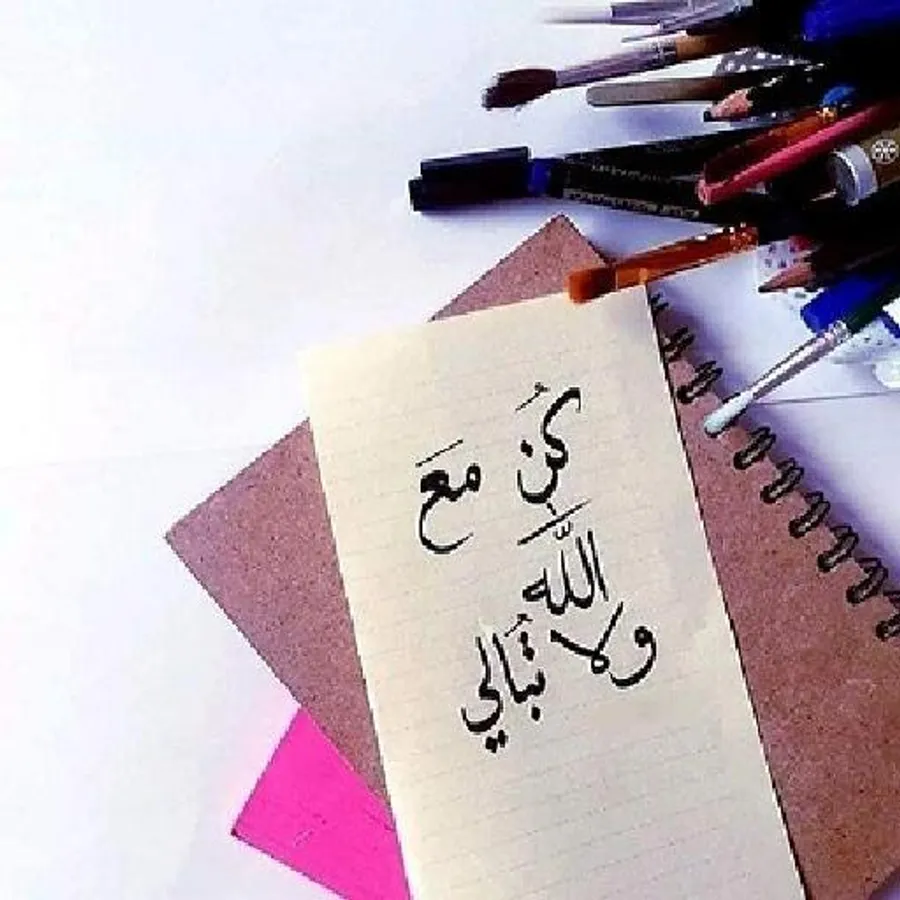 كُن مَعَ
اللَّه
ولا تُبَالي